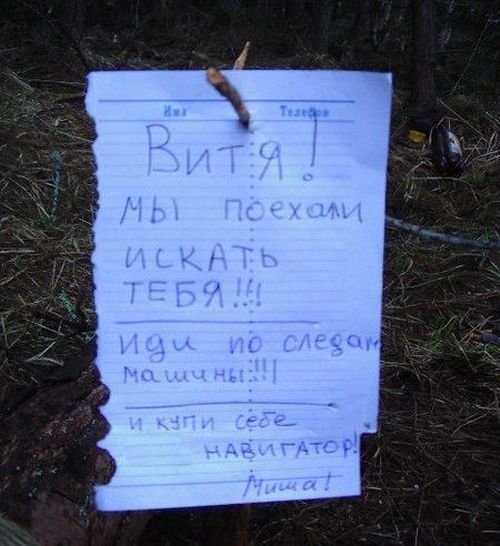 Имя Телефон
Витя!
мы поехали
искать
ТЕБЯ!!!
иди по следам
машины!!!
и купи себе
НАВИГАТОР!
Миша!